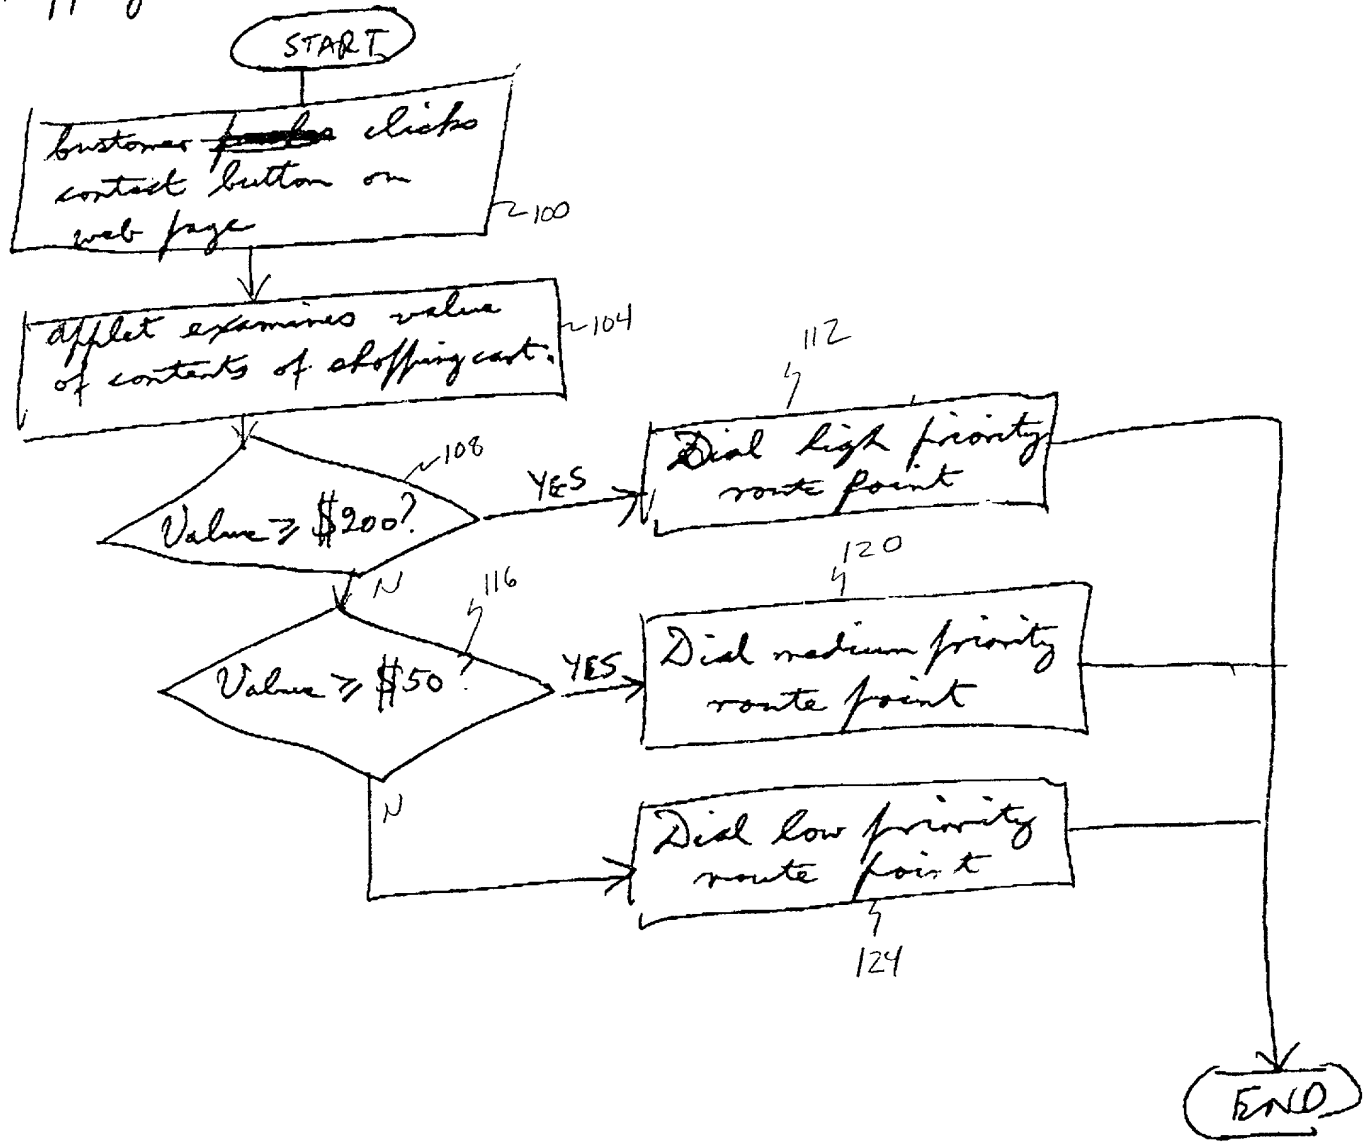 START
Customer clicks
contact button on
web page
100
applet examines value
of contents of shopping cart.
104
108
Value ≥ $200?
YES
112
Dial high priority
route point
N
116
Value ≥ $50?
YES
120
Dial medium priority
route point
N
Dial low priority
route point
124
END